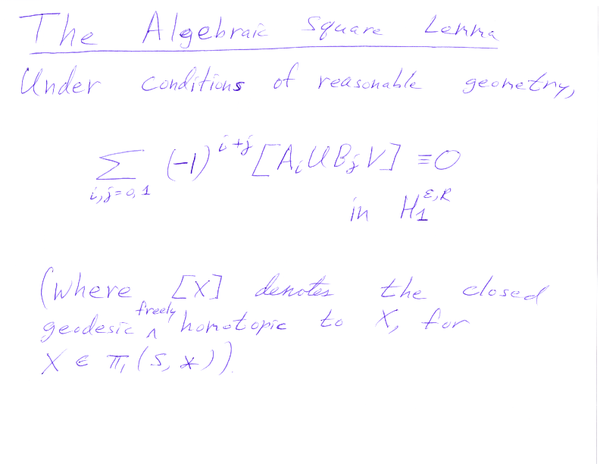 The Algebraic Square Lemma
Under conditions of reasonable geometry,
∑ (-1)^{i+j} [A_i U B_j V] ≡ 0
i,j=0,1
in H_1^{ε,R}
(where [X] denotes the closed
geodesic freely homotopic to X, for
X ∈ π_1(S, *)).